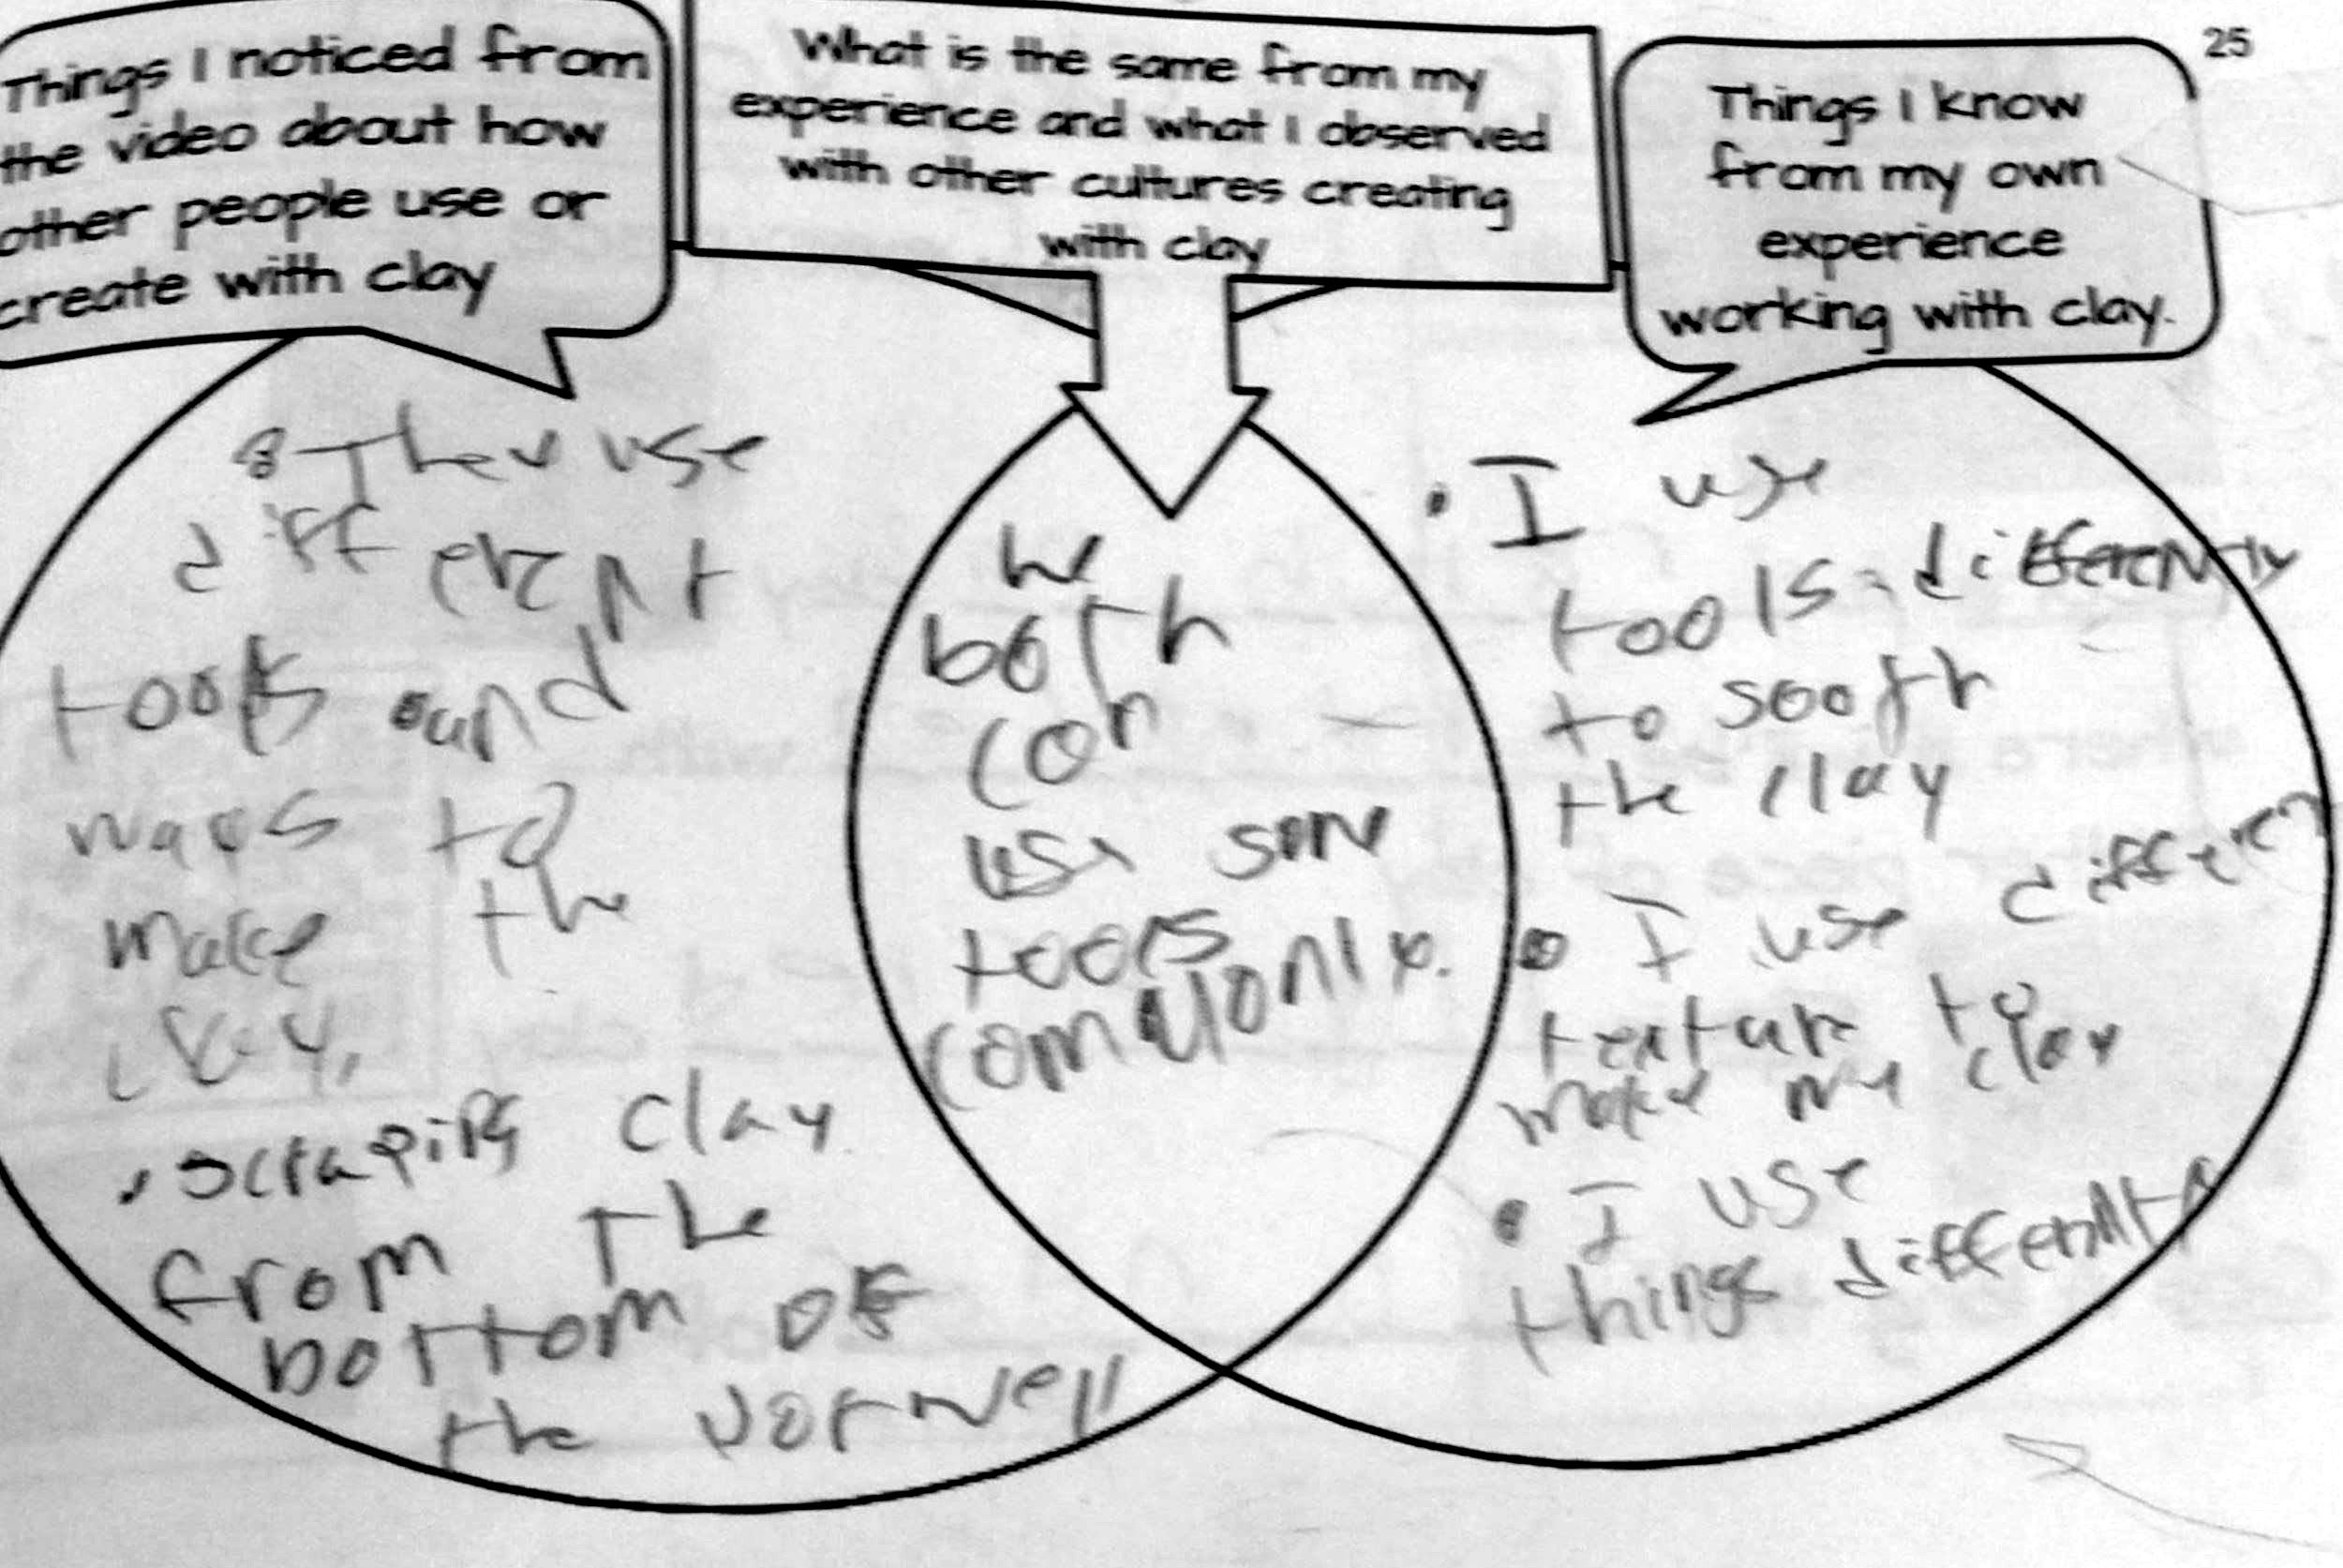 25
Things I noticed from
the video about how
other people use or
create with clay
What is the same from my
experience and what I observed
with other cultures creating
with clay
Things I know
from my own
experience
working with clay.
They use
different
tools and
ways to
make the
clay,
scraping clay
from the
bottom of
the
we
both
can
use some
tools
comMonly.
I use
tools differently
to sooth
the clay
I use differen
texture to
make my clay
I use
things differently